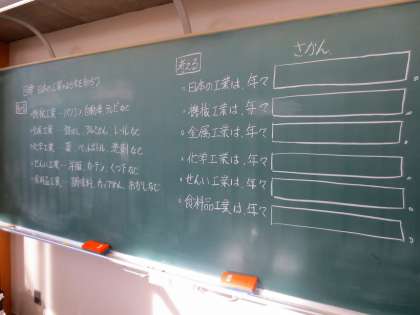 日本の工業の変化を知ろう
機械工業…パソコン、自動車、テレビなど
金属工業
レールなど
化学工業…薬、ペットボトル、洗剤など
せんい工業…洋服、カーテン、くつ下など
食料品工業…調味料、カップめん、おかしなど
考える
さかん
・日本の工業は、年々
・機械工業は、年々
・金属工業は、年々
・化学工業は、年々
・せんい工業は、年々
・食料品工業は、年々